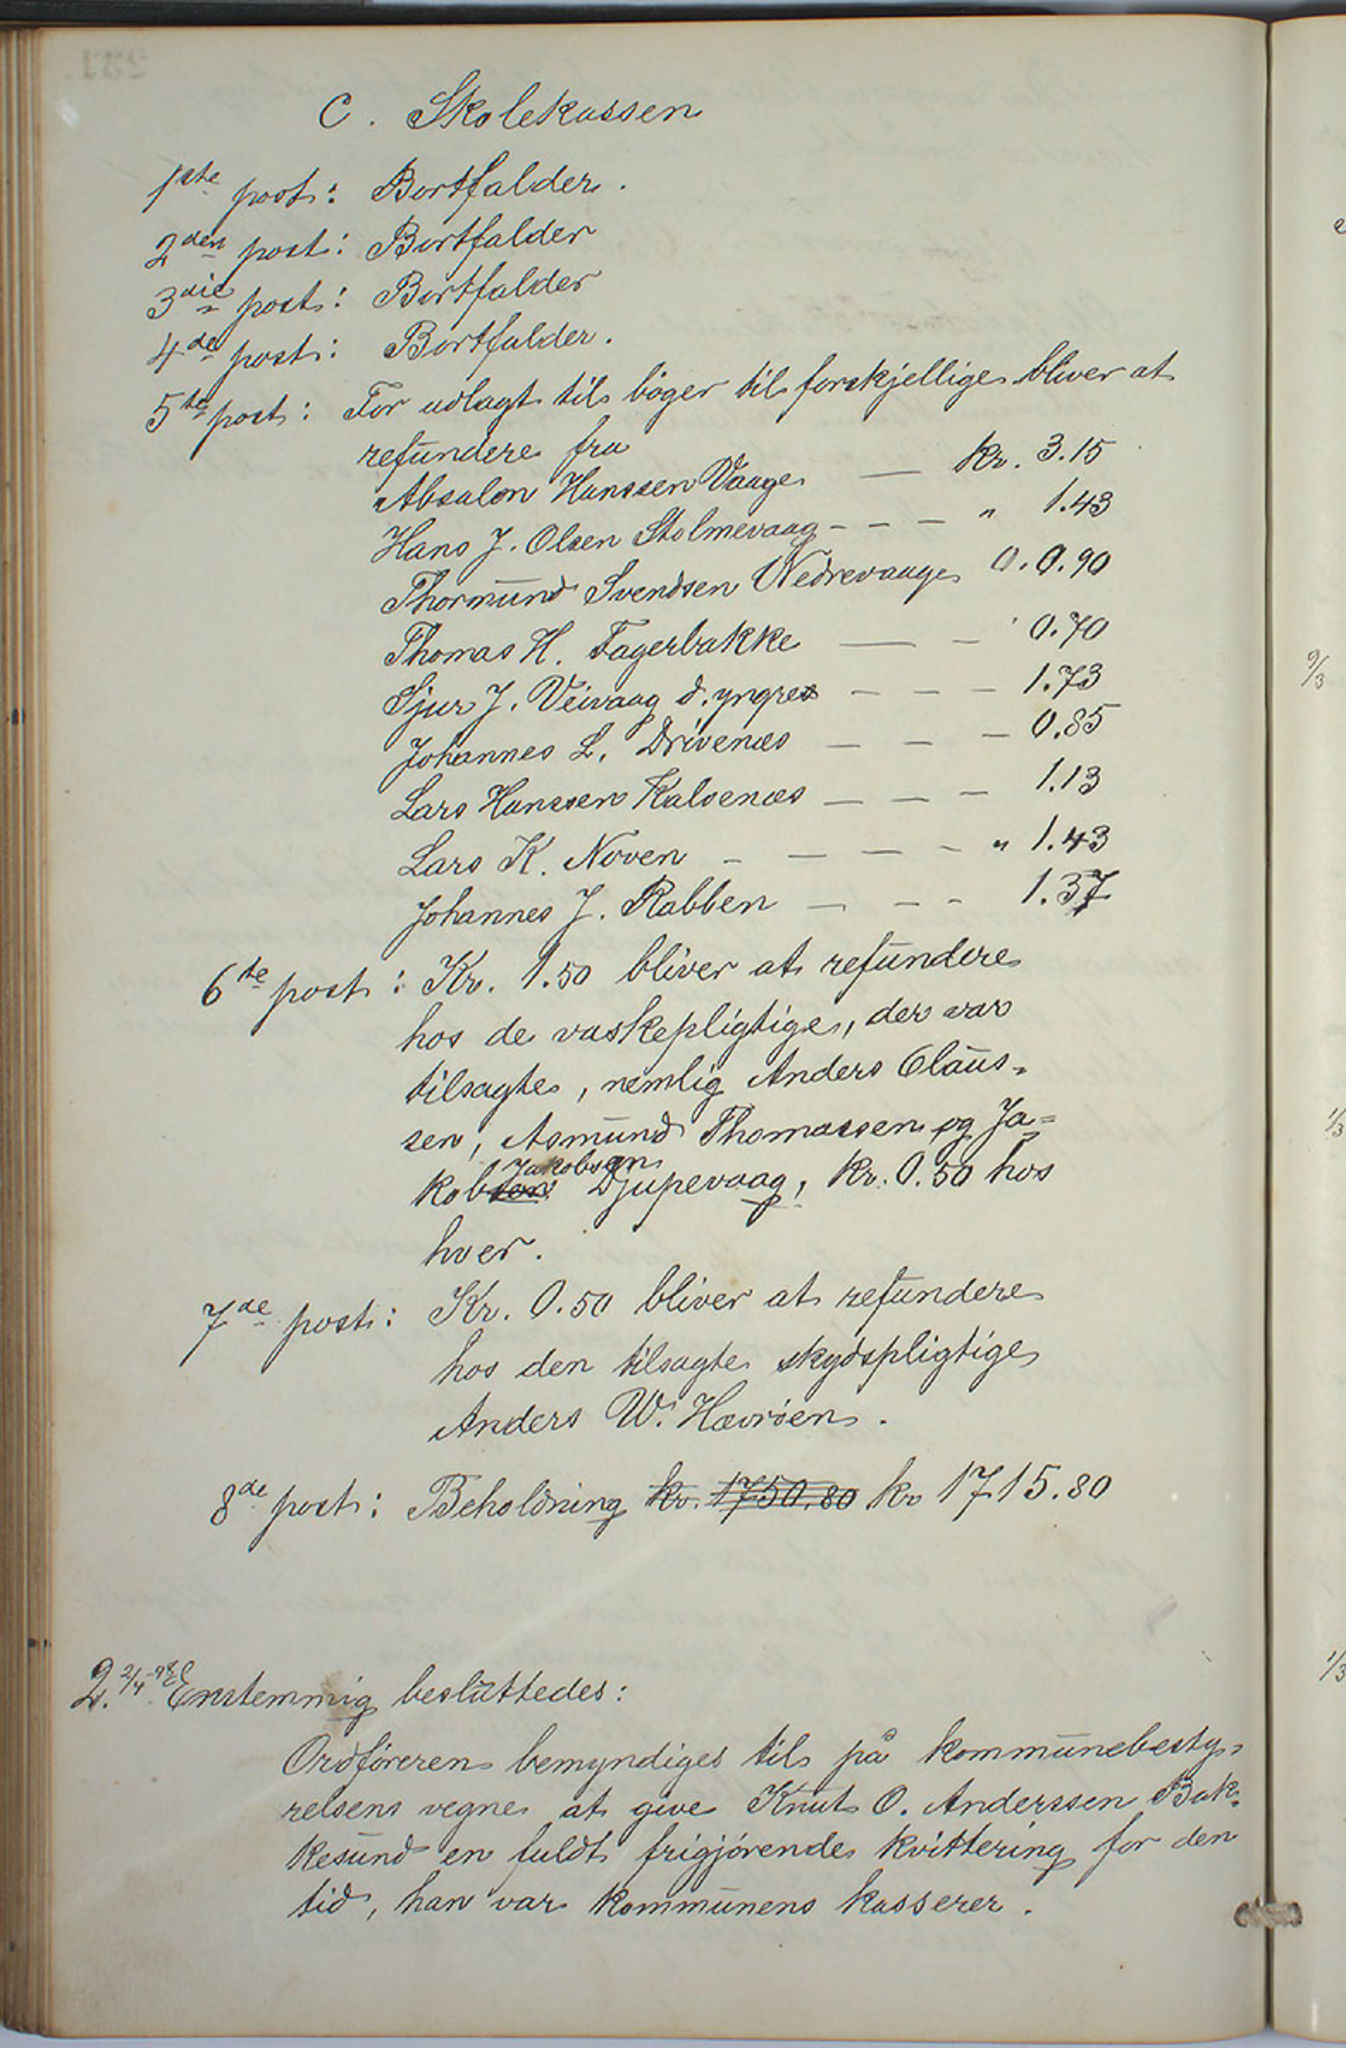 C. Skolekassen
1ste post: Bortfalder.
2den post: Bortfalder
3die post: Bortfalder
4de post: Bortfalder.
5te post: For udlagt til bøger til forskjellige bliver at
refundere fra
Absalon Hanssen Vaage — kr. 3.15
Hans J. Olsen Stolmevaag - - - " 1.43
Thormund Svendsen Nedrevaage 0.90
Thomas H. Fagerbakke — - ' 0.70
Sjur J. Veivaag d. yngre - - - 1.73
Johannes L. Drivenæs - - - 0.85
Lars Hanssen Kalvenæs - - - 1.13
Lars K. Noven - - - - - " 1.43
Johannes J. Rabben - - - 1.37
6te post: Kr. 1.50 bliver at refundere
hos de vaskepligtige, der var
tilsagte, nemlig Anders Claus-
sen, Asmund Thomassen og Ja-
kobsen Jakobsen Djupevaag, kr. 0.50 hos
hver.
7de post: Kr. 0.50 bliver at refundere
hos den tilsagte skydspligtige
Anders W. Hævrøen.
8de post: Beholdning kr. 1750.80 kr 1715.80
2. 2/4-98 Enstemmig besluttedes:
Ordføreren bemyndiges til på kommunebesty-
relsens vegne at give Knut O. Anderssen Bak-
kesund en fuldt frigjørende kvittering for den
tid, han var kommunens kasserer.